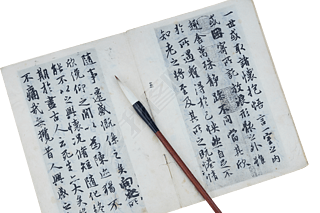 一世或取諸懷抱悟言一室之內
或因寄所託放浪形骸之外雖
趣舍萬殊靜躁不同當其欣
於所遇暫得於己快然自足不
知老之將至及其所之既惓情
隨事遷感慨係之矣向之
欣俛仰之間以為陳迹猶不
能不以之興懷況脩短隨化終
期於盡古人云死生亦大矣
不痛哉每攬昔人興感之